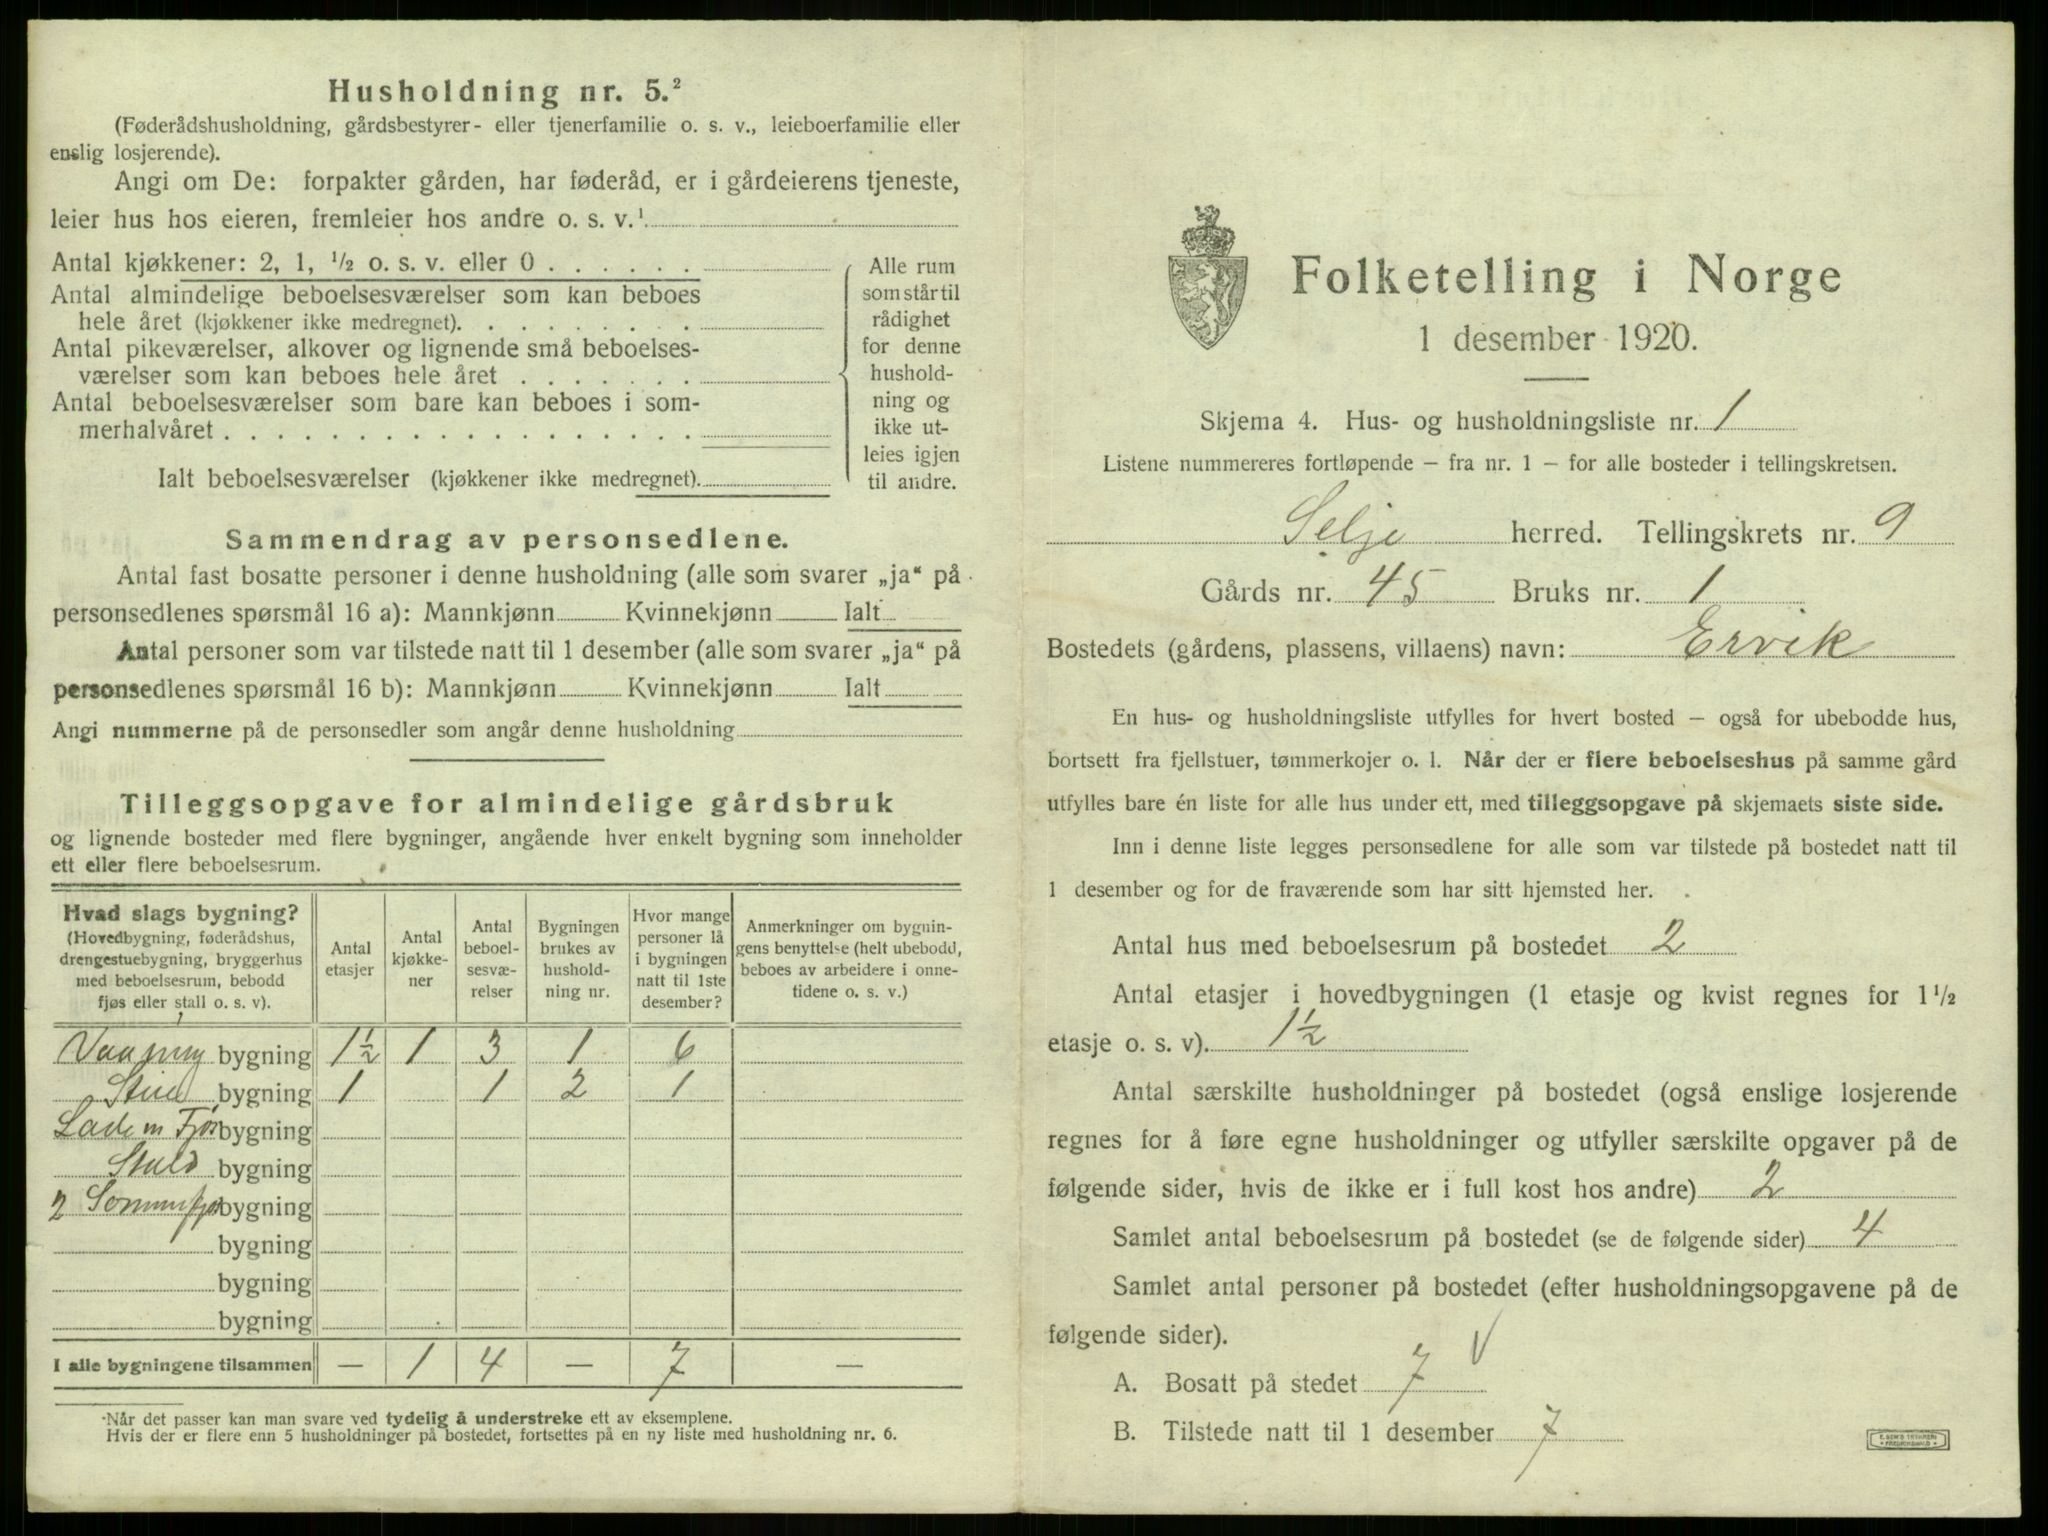 Husholdning nr. 5.²
(Føderådshusholdning, gårdsbestyrer- eller tjenerfamilie o. s. v., leieboerfamilie eller
enslig losjerende).
Angi om De: forpakter gården, har føderåd, er i gårdeierens tjeneste,
leier hus hos eieren, fremleier hos andre o. s. v.¹
Antal kjøkkener: 2, 1, ½ o. s. v. eller 0
Antal almindelige beboelsesværelser som kan beboes
hele året (kjøkkener ikke medregnet).
Antal pikeværelser, alkover og lignende små beboelses-
værelser som kan beboes hele året
Antal beboelsesværelser som bare kan beboes i som-
merhalvåret
Ialt beboelsesværelser (kjøkkener ikke medregnet).
Alle rum
som står til
rådighet
for denne
hushold-
ning og
ikke ut-
leies igjen
til andre.
Sammendrag av personsedlene.
Antal fast bosatte personer i denne husholdning (alle som svarer „ja“ på
personsedlenes spørsmål 16 a): Mannkjønn Kvinnekjønn Ialt
Antal personer som var tilstede natt til 1 desember (alle som svarer „ja“ på
personsedlenes spørsmål 16 b): Mannkjønn Kvinnekjønn Ialt
Angi nummerne på de personsedler som angår denne husholdning
Tilleggsopgave for almindelige gårdsbruk
og lignende bosteder med flere bygninger, angående hver enkelt bygning som inneholder
ett eller flere beboelsesrum.
Hvad slags bygning?
(Hovedbygning, føderådshus,
drengestuebygning, bryggerhus
med beboelsesrum, bebodd
fjøs eller stall o. s. v).
Antal
etasjer
Antal
kjøkke-
ner
Antal
beboel-
sesvæ-
relser
Bygningen
brukes av
hushold-
ning nr.
Hvor mange
personer lå
i bygningen
natt til 1ste
desember?
Anmerkninger om bygnin-
gens benyttelse (helt ubebodd,
beboes av arbeidere i onne-
tidene o. s. v.)
bygning 1½ 1 3 1 6
bygning 1 1 2 1
Lade m Fjøs bygning
Stald bygning
2 Sommerfjøs bygning
bygning
bygning
bygning
I alle bygningene tilsammen — 1 4 — 7 —
¹Når det passer kan man svare ved tydelig å understreke ett av eksemplene.
Hvis der er flere enn 5 husholdninger på bostedet, fortsettes på en ny liste med husholdning nr. 6.
Folketelling i Norge
1 desember 1920.
Skjema 4. Hus- og husholdningsliste nr. 1
Listene nummereres fortløpende – fra nr. 1 – for alle bosteder i tellingskretsen.
Selje herred. Tellingskrets nr. 9
Gårds nr. 45 Bruks nr. 1
Bostedets (gårdens, plassens, villaens) navn: Ervik
En hus- og husholdningsliste utfylles for hvert bosted – også for ubebodde hus,
bortsett fra fjellstuer, tømmerkojer o. l. Når der er flere beboelseshus på samme gård
utfylles bare én liste for alle hus under ett, med tilleggsopgave på skjemaets siste side.
Inn i denne liste legges personsedlene for alle som var tilstede på bostedet natt til
1 desember og for de fraværende som har sitt hjemsted her.
Antal hus med beboelsesrum på bostedet 2
Antal etasjer i hovedbygningen (1 etasje og kvist regnes for 1½
etasje o. s. v). 1½
Antal særskilte husholdninger på bostedet (også enslige losjerende
regnes for å føre egne husholdninger og utfyller særskilte opgaver på de
følgende sider, hvis de ikke er i full kost hos andre) 2
Samlet antal beboelsesrum på bostedet (se de følgende sider) 4
Samlet antal personer på bostedet (efter husholdningsopgavene på de
følgende sider).
A. Bosatt på stedet 7 V
B. Tilstede natt til 1 desember 7